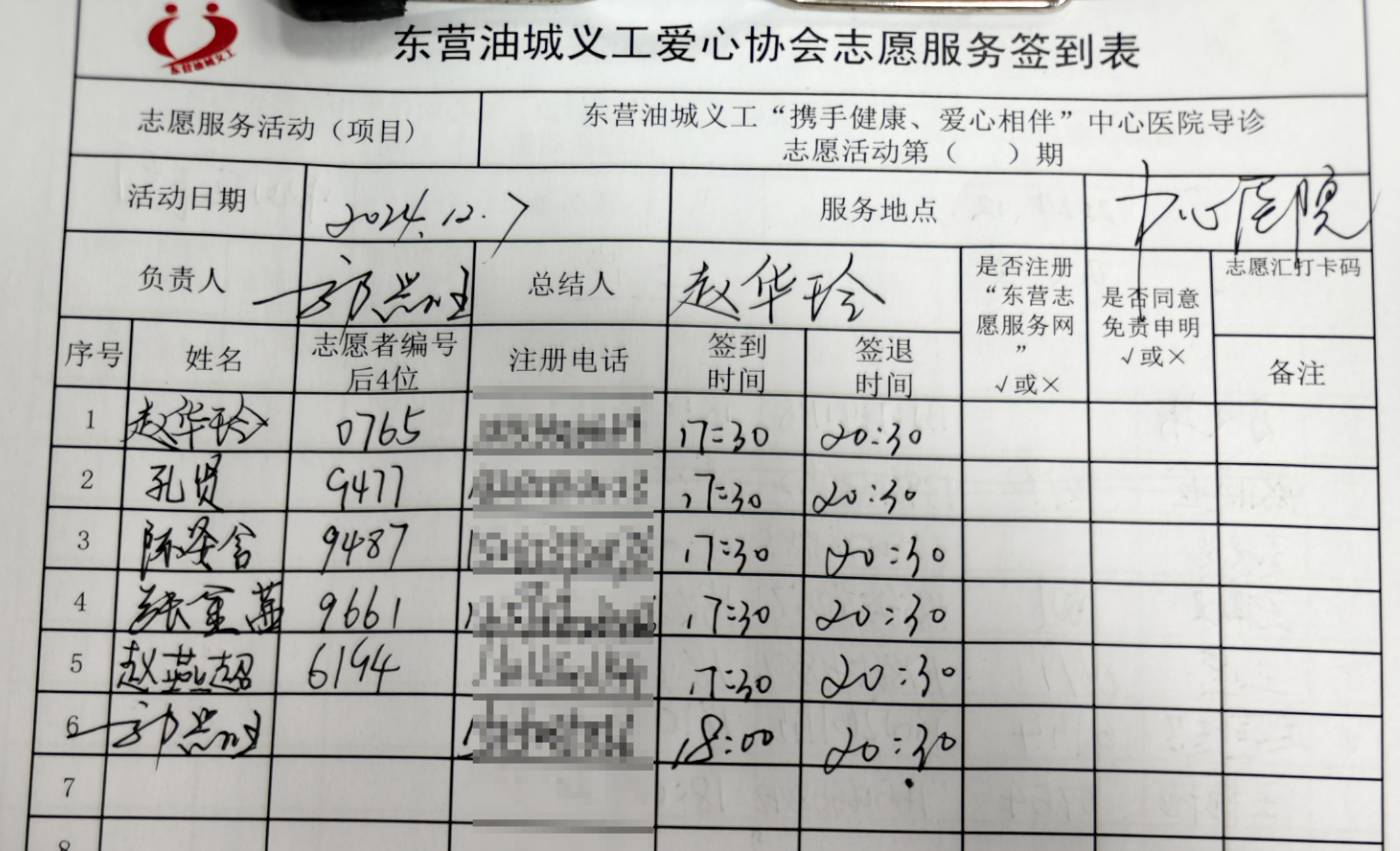 东营油城义工
东营油城义工爱心协会志愿服务签到表
志愿服务活动（项目）
东营油城义工“携手健康、爱心相伴”中心医院导诊
志愿活动第（ ）期
活动日期 2024.12.7 服务地点 中心医院
负责人 总结人 赵华玲
是否注册
“东营志
愿服务网
”
√或×
是否同意
免责申明
√或×
志愿汇打卡码
序号 姓名
志愿者编号
后4位
注册电话
签到
时间
签退
时间
备注
1 赵华玲 0765 17:30 20:30
2 孔贤 9477 17:30 20:30
3 9487 17:30 20:30
4 张金 9661 17:30 20:30
5 赵燕超 6194 17:30 20:30
6 18:00 20:30
7
8